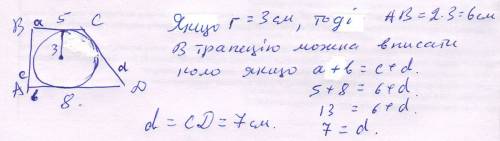 B a 5 C
3
c d
A b 8. D
Якщо r = 3 см, тоді AB = 2·3 = 6 см
В трапецію можна вписати
коло якщо a + b = c + d.
5 + 8 = 6 + d.
13 = 6 + d.
d = CD = 7 см. 7 = d.